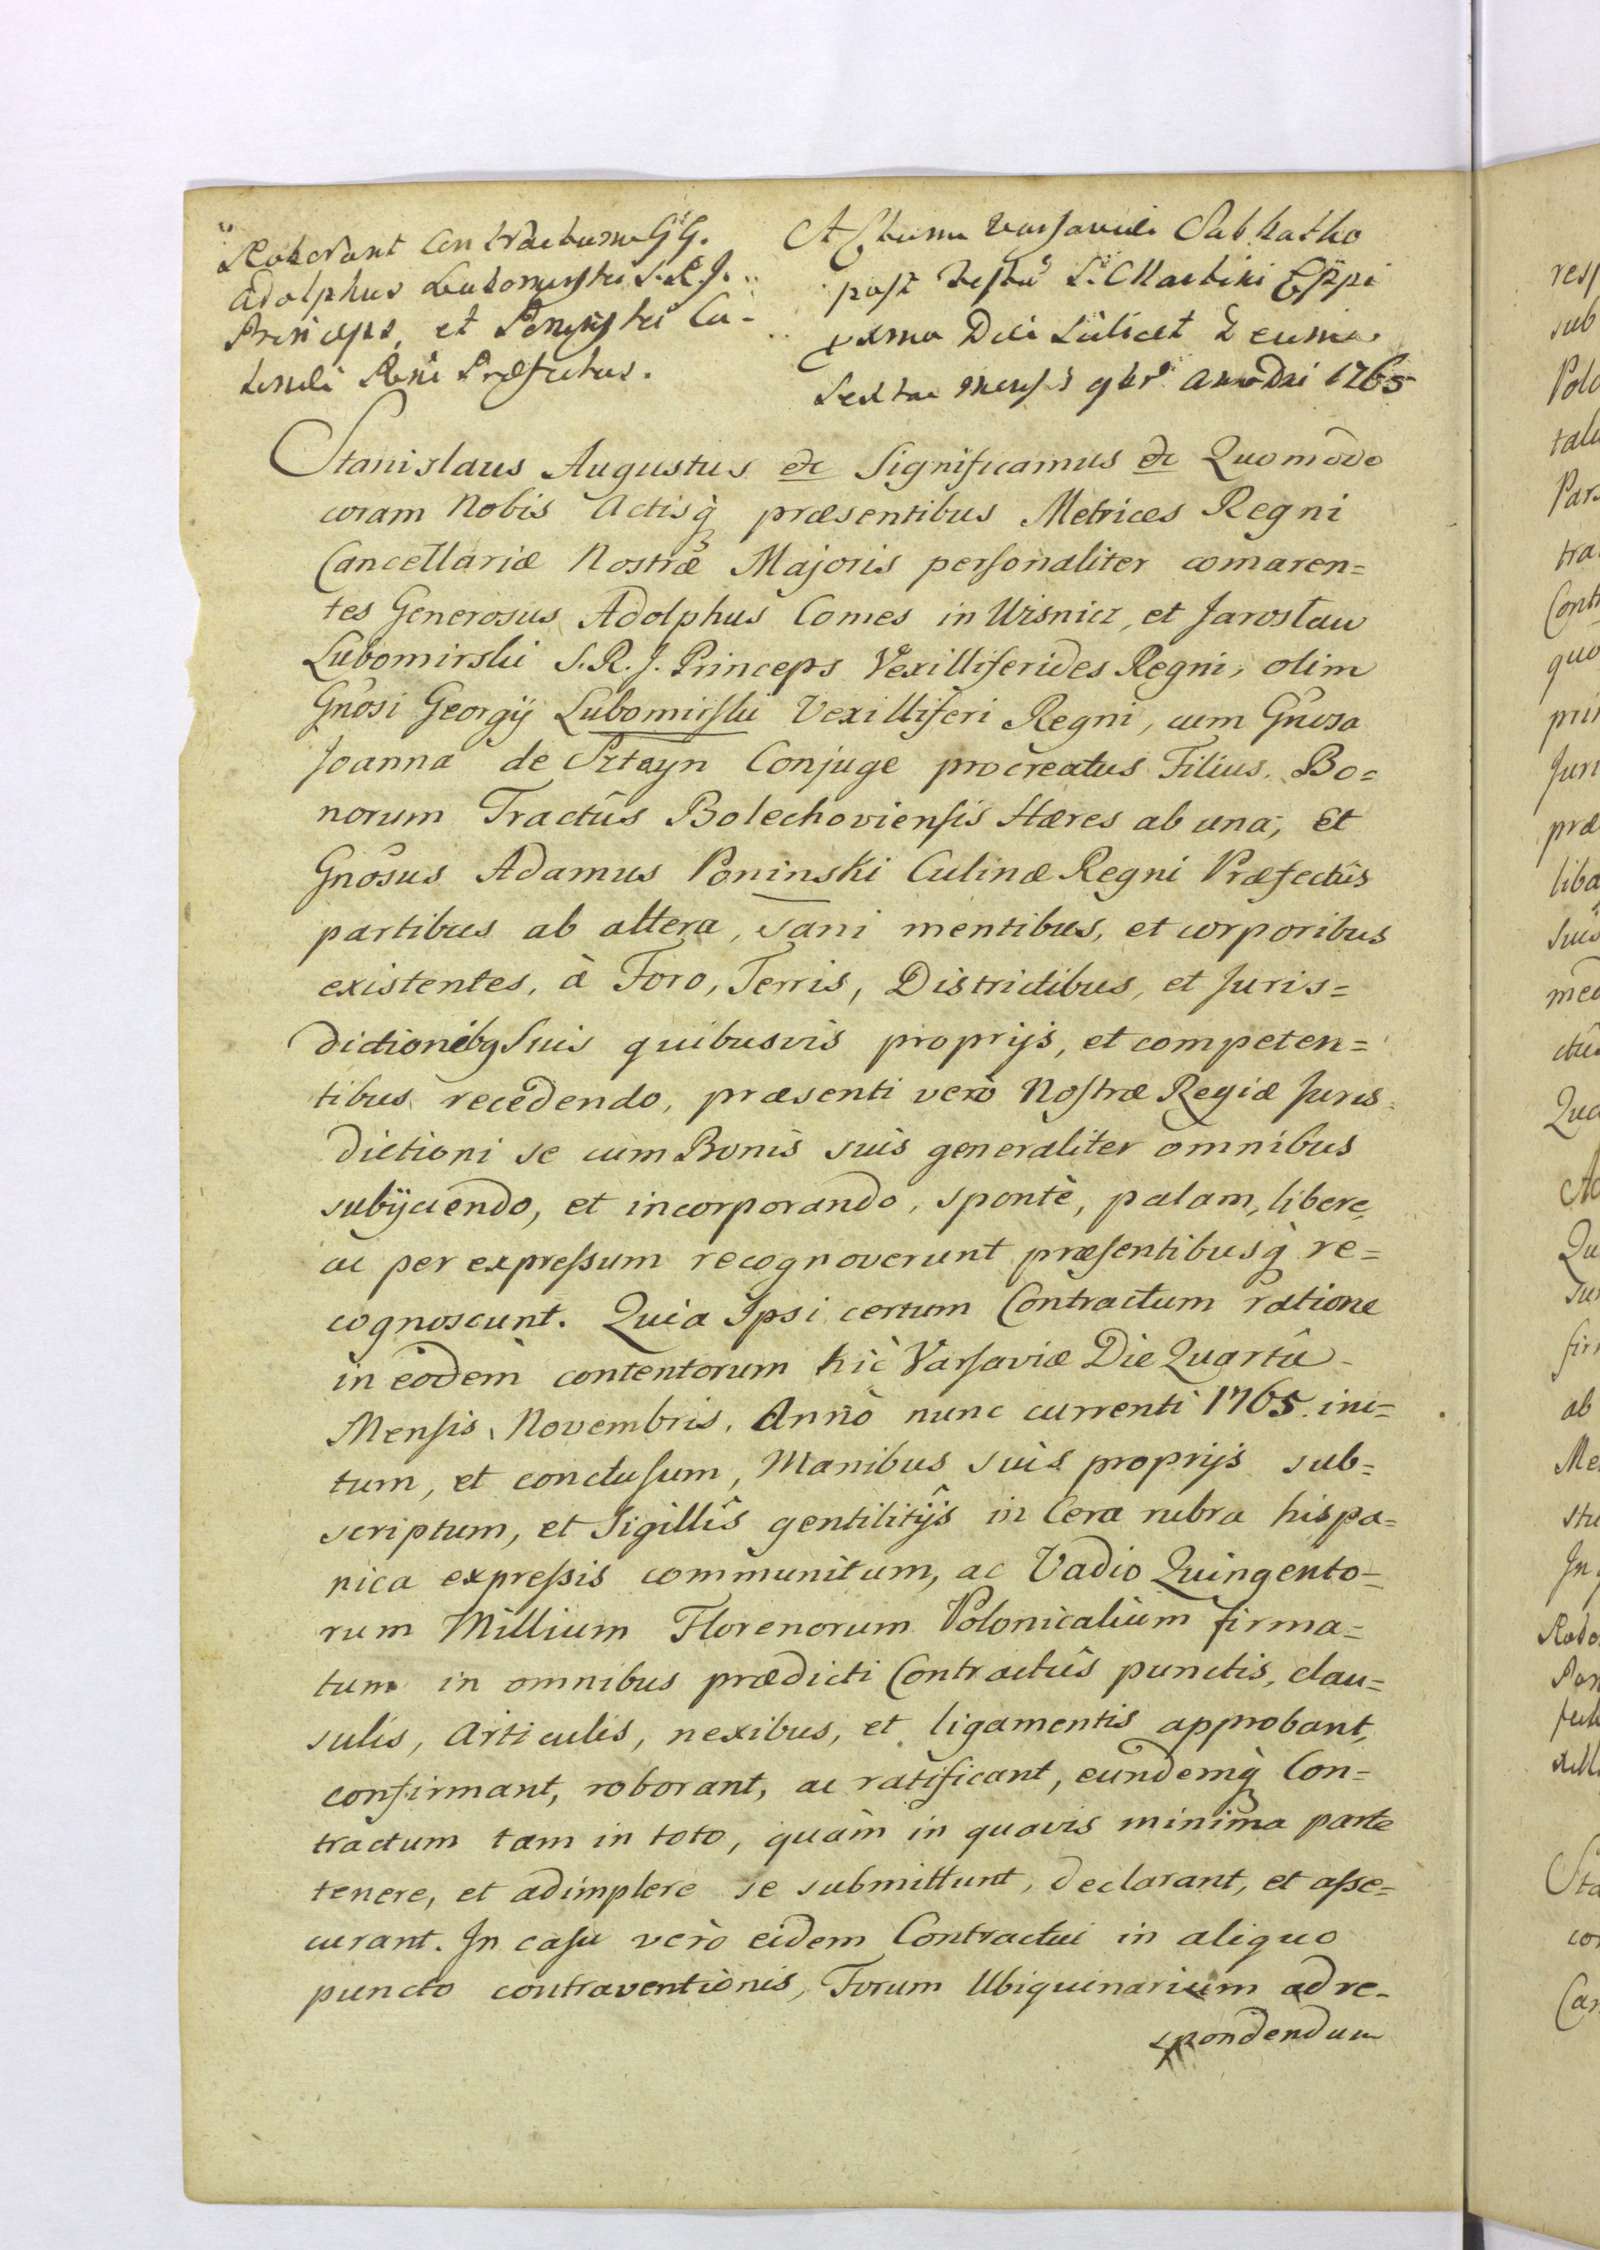 Roborant Contractum GG.
Adolphus Lubomirski S. R. J.
Princeps, et Poninski Cu-
linæ Rñi Præfectus.
Actum Varsaviæ Sabbatho
post Festũ S. Martini Eppi
pxmo Die scilicet Decima
Sexta mensis 9brs Anno Dni 1765
Stanislaus Augustus etc Significamus etc Quomodo
coram Nobis Actisq̃ præsentibus Metrices Regni
Cancellariæ Nostræ Majoris personaliter comparen=
tes Generosus Adolphus Comes in Wisnicz, et Jarosław
Lubomirski S. R. J. Princeps Vexilliferides Regni, olim
Gñosi Georgij Lubomirski Vexilliferi Regni, cum Gñosa
Joanna de Sztayn Conjuge procreatus Filius, Bo=
norum Tractûs Bolechoviensis Hæres ab una, Et
Gnõsus Adamus Poninski Culinæ Regni Præfectûs
partibus ab altera, sani mentibus, et corporibus
existentes, à Foro, Terris, Districtibus, et Juris=
dictionibq Suis quibusvis proprijs, et competen=
tibus recedendo, præsenti verò Nostræ Regiæ Juris=
dictioni se cum Bonis suis generaliter omnibus
subijciendo, et incorporando, spontè, palam, libere,
ac per expressum recognoverunt præsentibusq̃ re=
cognoscunt. Quia Ipsi certum Contractum ratione
in eodem contentorum hìc Varsaviæ Die Quartâ
Mensis Novembris, Annò nunc currenti 1765. ini=
tum, et conclusum, Manibus suis proprijs sub=
scriptum, et Sigillîs gentilitijs in Cera rubra hispa=
nica expressis communitum, ac Vadio Quingento=
rum Millium Florenorum Polonicalium firma=
tum in omnibus prædicti Contractûs punctis, clau=
sulis, Articulis, nexibus, et ligamentis approbant,
confirmant, roborant, ac ratificant, eundemq̃ Con=
tractum tam in toto, quàm in quavis minima parte
tenere, et adimplere se submittunt, declarant, et asse=
curant. In casu verò eidem Contractui in aliquo
puncto contraventionis, Forum Ubiquinarium ad re-
spondendum